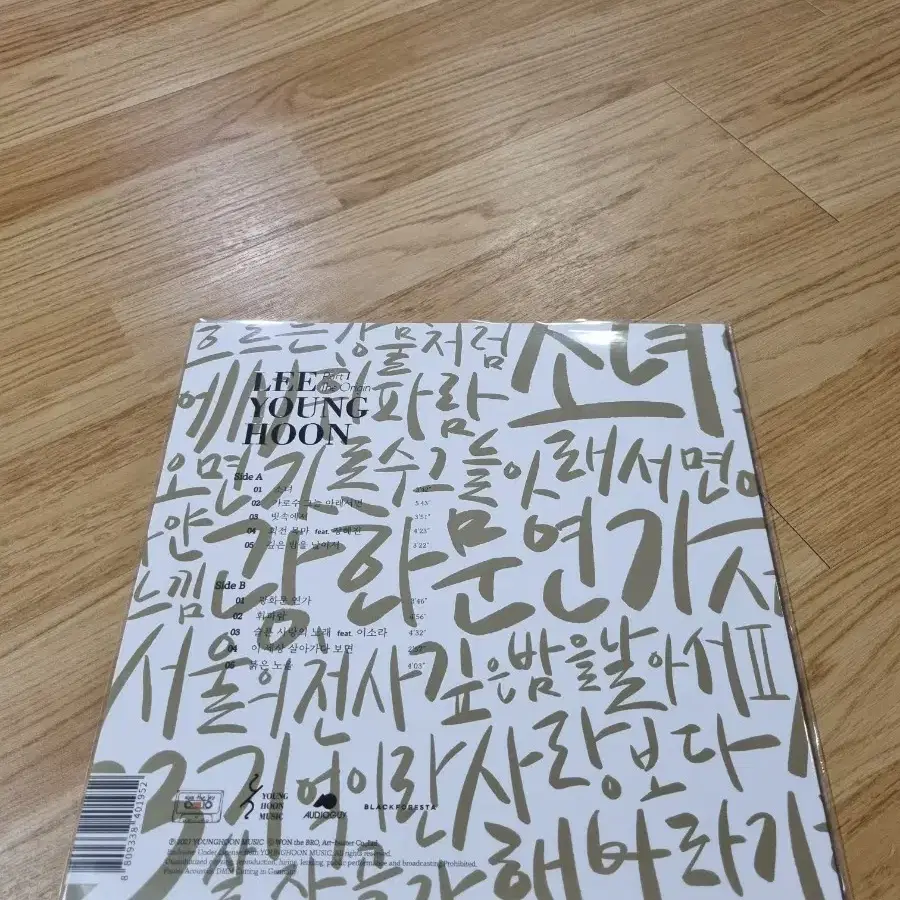 흐르는 강물처럼 소녀
파람
LEE Part 1
YOUNG The Origin
HOON
오면 가로수 그늘 아래 서면
Side A
01 소녀 3'42"
02 가로수 그늘 아래서면 5'45"
03 빗속에서 3'51"
04 회전 목마 feat. 정혜진 4'23"
05 깊은 밤을 날아서 3'22"
광화문연가
느낌
Side B
01 광화문 연가 3'46"
02 휘파람 4'56"
03 슬픈 사랑의 노래 feat. 이소라 4'32"
04 이 세상 살아가다 보면
05 붉은 노을 4'03"
서울의 천사 깊은 밤을 날아서 II
기억이란 사랑보다
YOUNG HOON MUSIC
AUDIOGUY
BLACKFORESTA
해바라기
8 809338 401952
Ⓟ 2021 YOUNGHOON MUSIC © WON the BRO, Art-buster Co.,Ltd.
Exclusive Under License from YOUNGHOON MUSIC. All rights reserved.
Unauthorized copying, reproduction, hiring, lending, public performance and broadcasting Prohibited.
Pauler Acoustics DMM Cutting in Germany